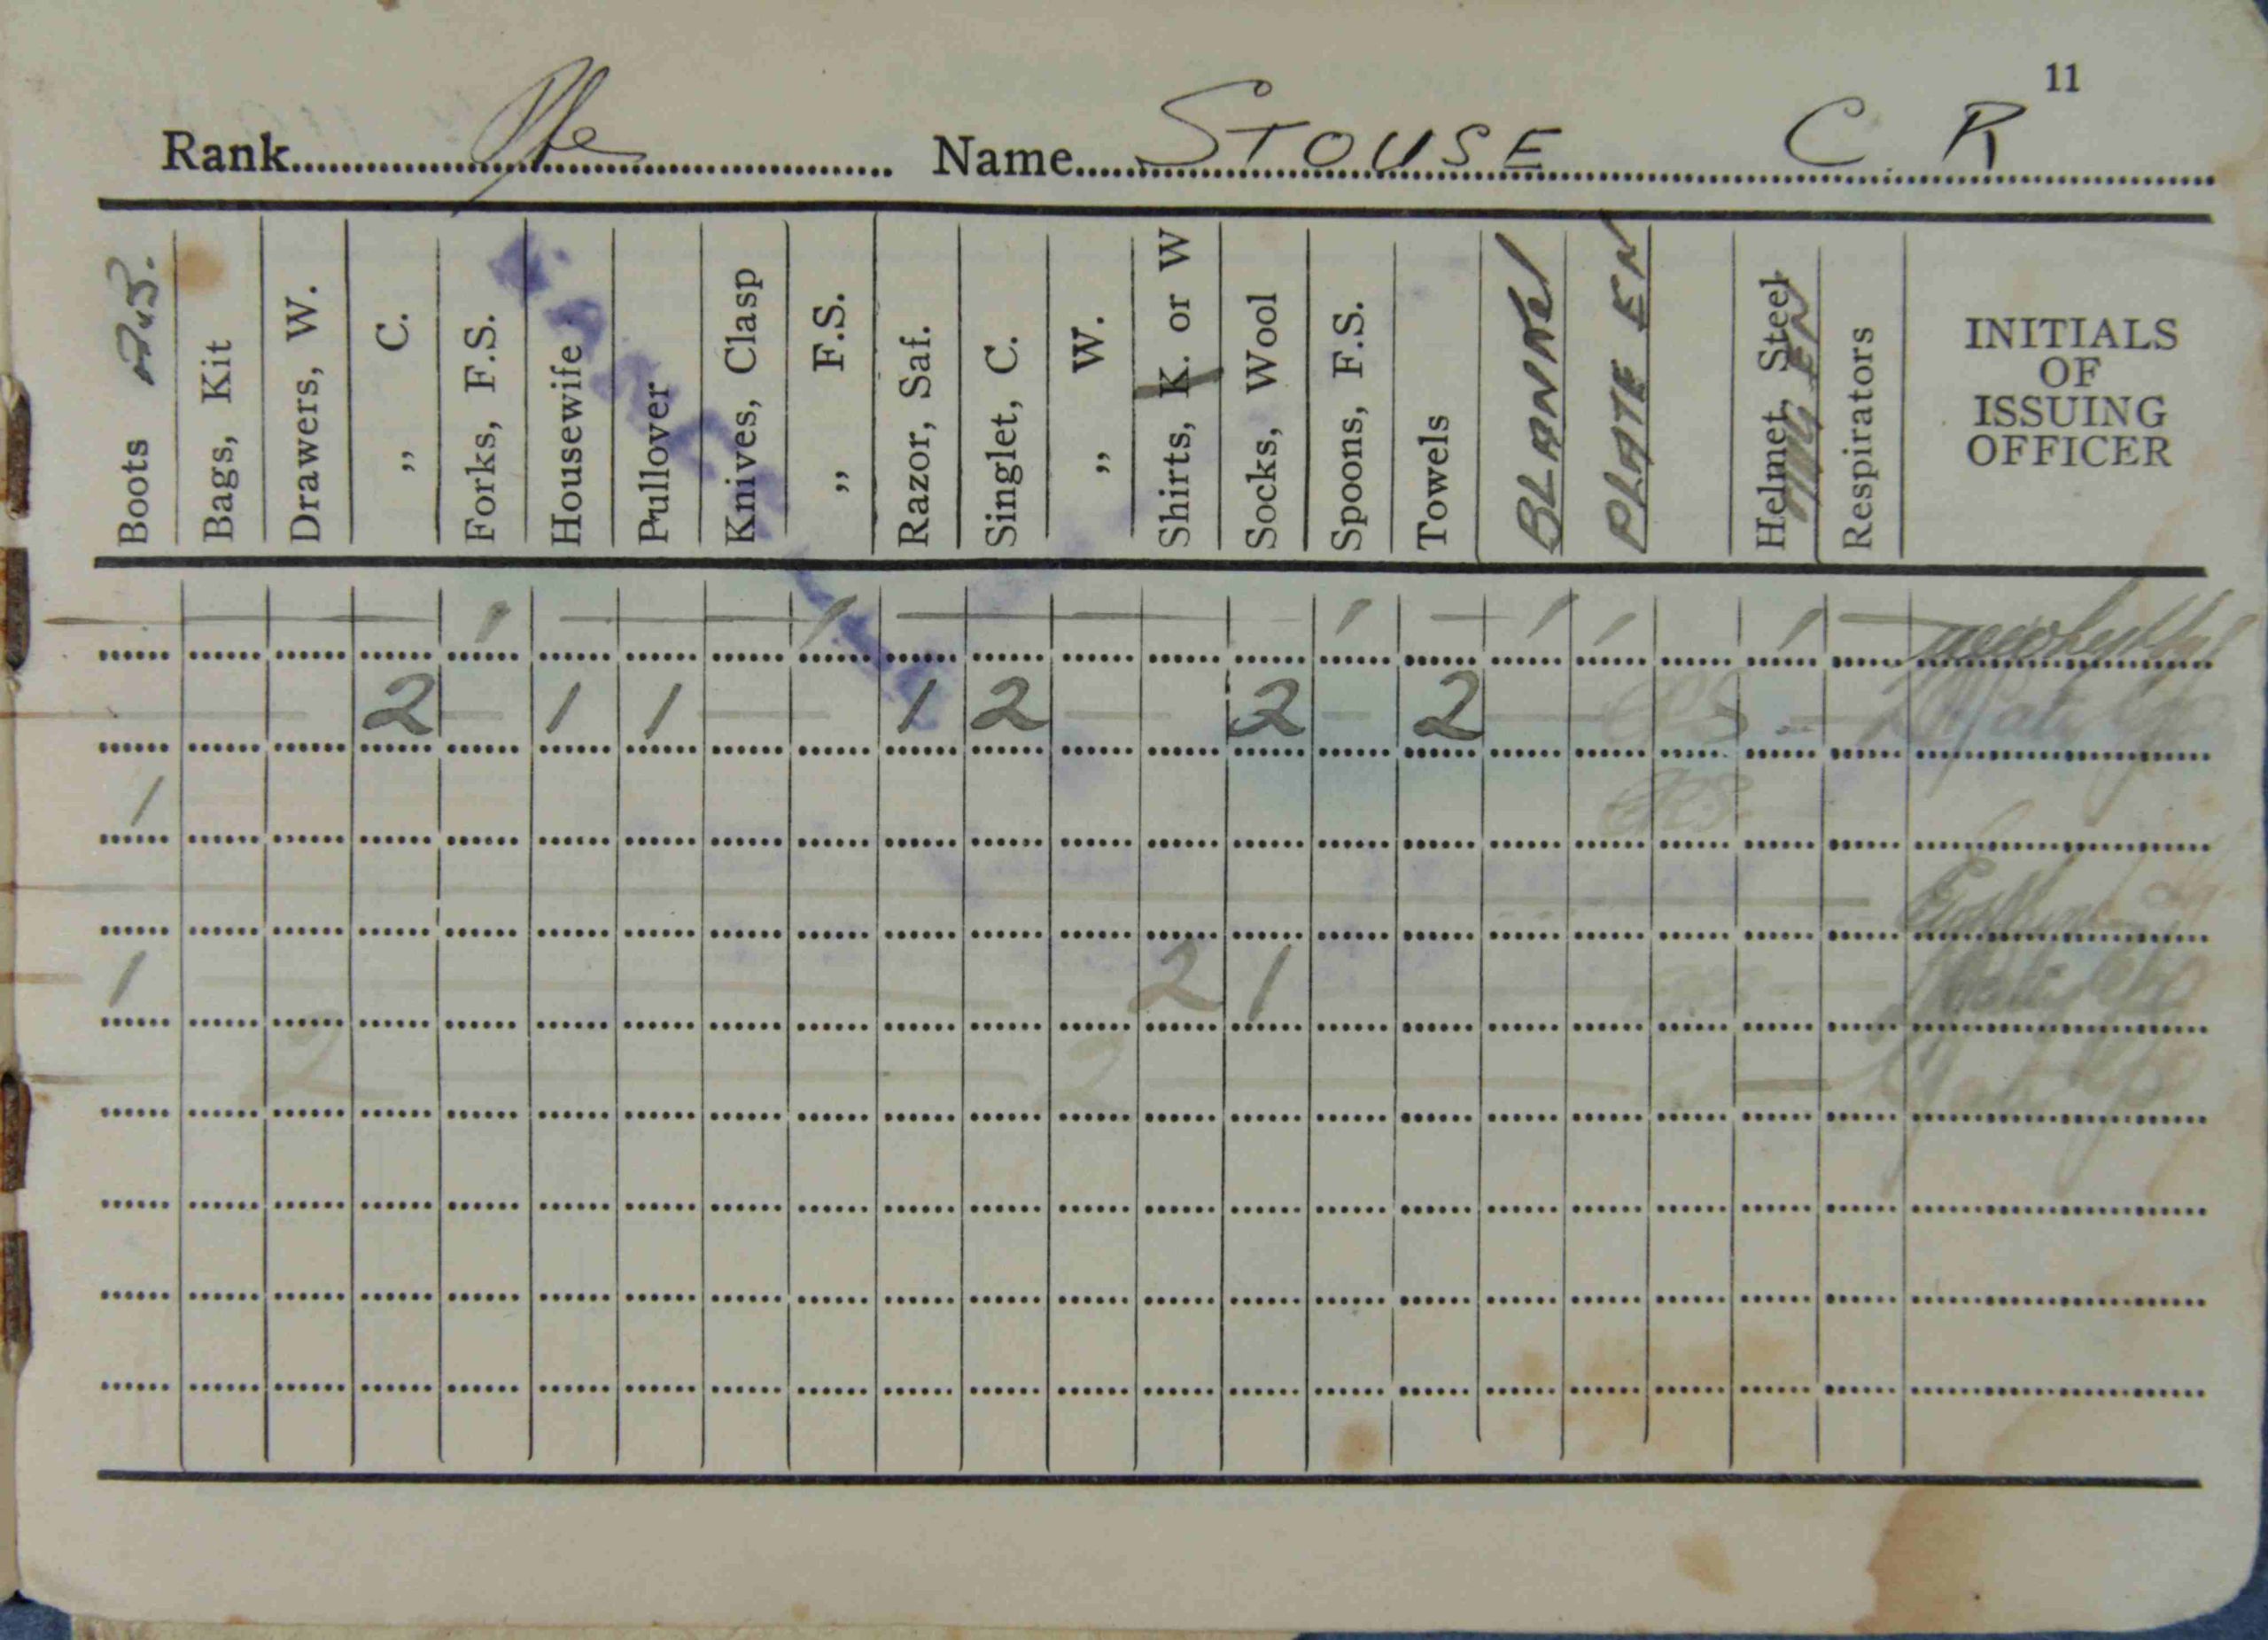 11
Rank Pte Name STOUSE C. R
Boots
Bags, Kit
Drawers, W.
„ C.
Forks, F.S.
Housewife
Pullover
Knives, Clasp
„ F.S.
Razor, Saf.
Singlet, C.
„ W.
Shirts, K. or W
Socks, Wool
Spoons, F.S.
Towels
BLANKET
PLATE EN
Helmet, Steel
MUG EN
Respirators
INITIALS
OF
ISSUING
OFFICER
1 1 1 1 1 1
2 1 1 1 2 2 2
1
1 2 1
2 2